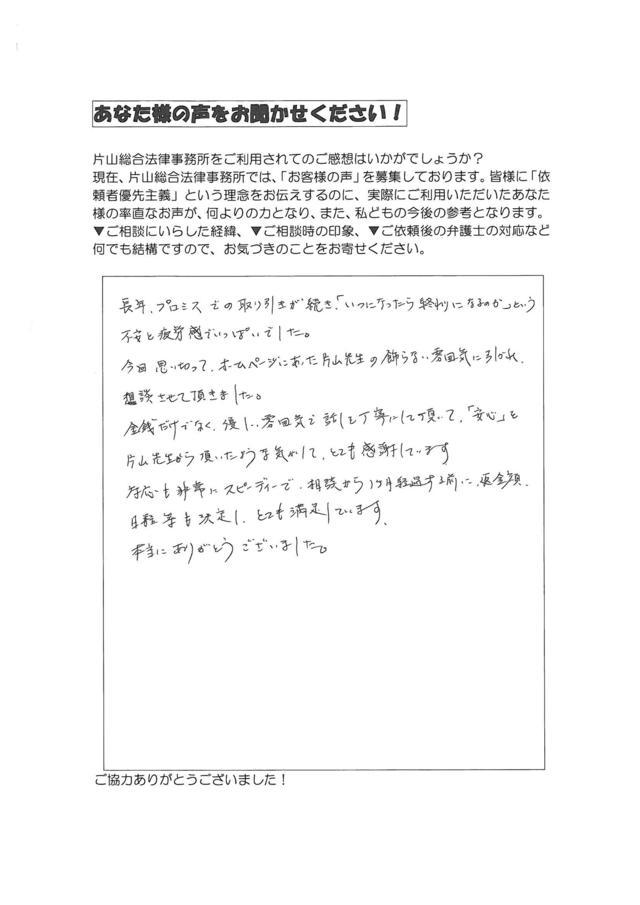 あなた様の声をお聞かせください！
片山総合法律事務所をご利用されてのご感想はいかがでしょうか？
現在、片山総合法律事務所では、「お客様の声」を募集しております。皆様に「依
頼者優先主義」という理念をお伝えするのに、実際にご利用いただいたあなた
様の率直なお声が、何よりの力となり、また、私どもの今後の参考となります。
▼ご相談にいらした経緯、▼ご相談時の印象、▼ご依頼後の弁護士の対応など
何でも結構ですので、お気づきのことをお寄せください。
長年、プロミスでの取り引きが続き、「いつになったら終わりになるのか」という
不安と疲労感でいっぱいでした。
今回思い切って、ホームページにあった片山先生の飾らない雰囲気に引かれ、
相談させて頂きました。
金銭だけでなく、優しい雰囲気で話しを丁寧にして頂いて、「安心」を
片山先生から頂いたような気がして、とても感謝しています
対応も非常にスピーディーで、相談から1ヶ月経過する前に、返金額、
日程等も決定し、とても満足しています。
本当にありがとうございました。
ご協力ありがとうございました！